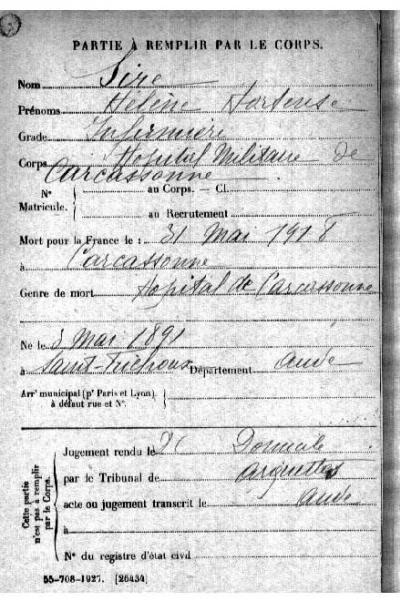 PARTIE À REMPLIR PAR LE CORPS.
Nom Sire
Prénoms Hélène Hortense
Grade Infirmière
Corps Hôpital Militaire de
Carcassonne
N° Matricule. au Corps. — Cl.
au Recrutement
Mort pour la France le : 31 Mai 1918
à Carcassonne
Genre de mort Hopital de Carcassonne
Né le 3 Mai 1891
à Saint-Frichoux Département Aude
Arrt municipal (pr Paris et Lyon),
à défaut rue et N°.
Cette partie n'est pas à remplir par le Corps.
Jugement rendu le
par le Tribunal de Arquettes
acte ou jugement transcrit le Aude
à
N° du registre d'état civil
55-708-1927. [26434]